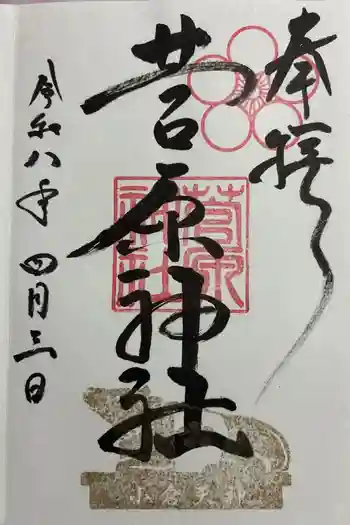 奉拝
菅原神社
菅原神社
令和八年四月三日
小倉天神